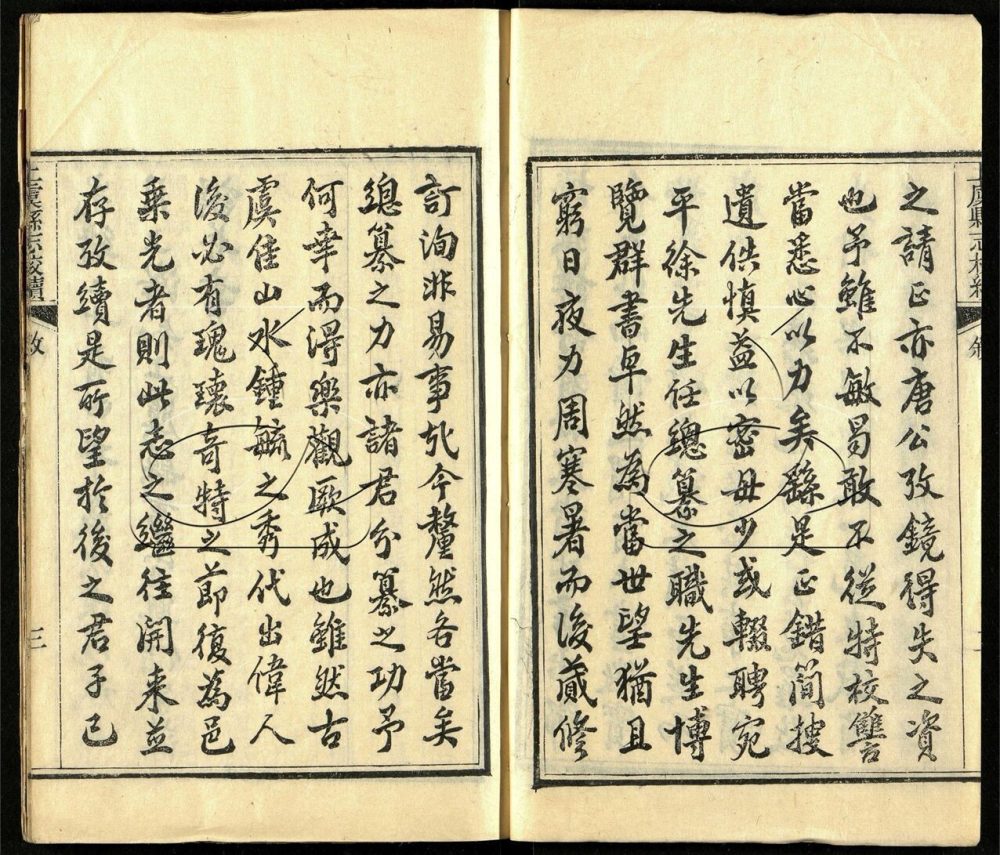 之請正亦唐公攷鏡得失之資
也予雖不敏曷敢不從特校讐言
當悉心以力矣繇是正錯簡搜
遺佚慎益以密毋少或輟聘宛
平徐先生任總纂之職先生博
覽群書卓然為當世望猶且
窮日夜力周寒暑而後蕆修
訂洵非易事夫今釐然各當矣
總纂之力亦諸君分纂之功予
何幸而得樂觀厥成也雖然古
虞佳山水鍾毓之秀代出偉人
後必有瑰瓌奇特之節復為邑
乘光者則此志之繼往開来並
存攷續是所望於後之君子已
上虞縣志校續
三